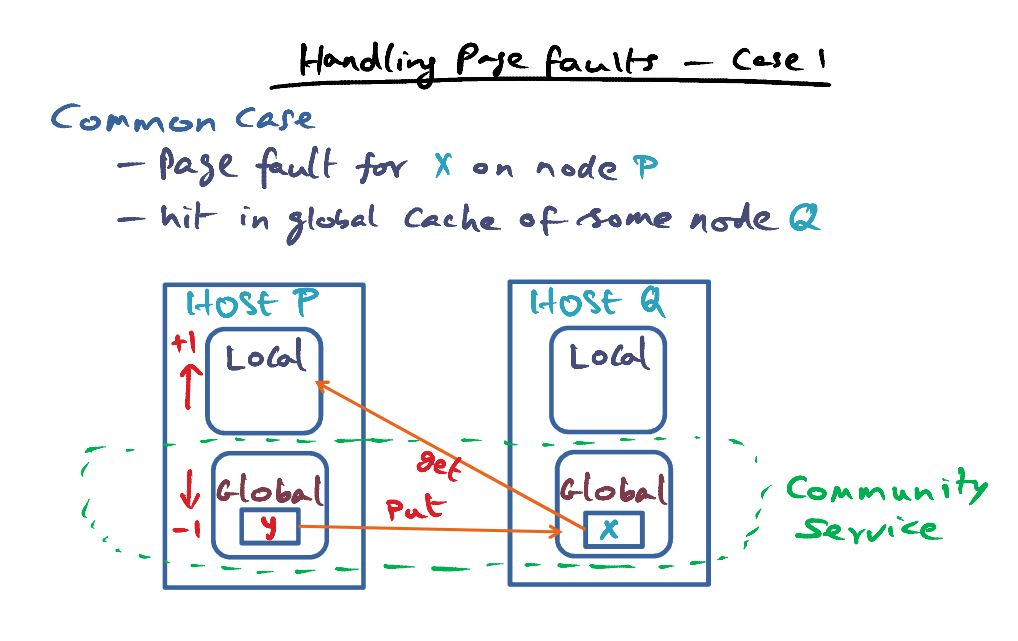 Handling Page faults – Case 1
Common Case
– Page fault for X on node P
– hit in global cache of some node Q
HOST P
HOST Q
+1
Local
Local
get
-1
Global
Put
Global
y
X
Community
Service